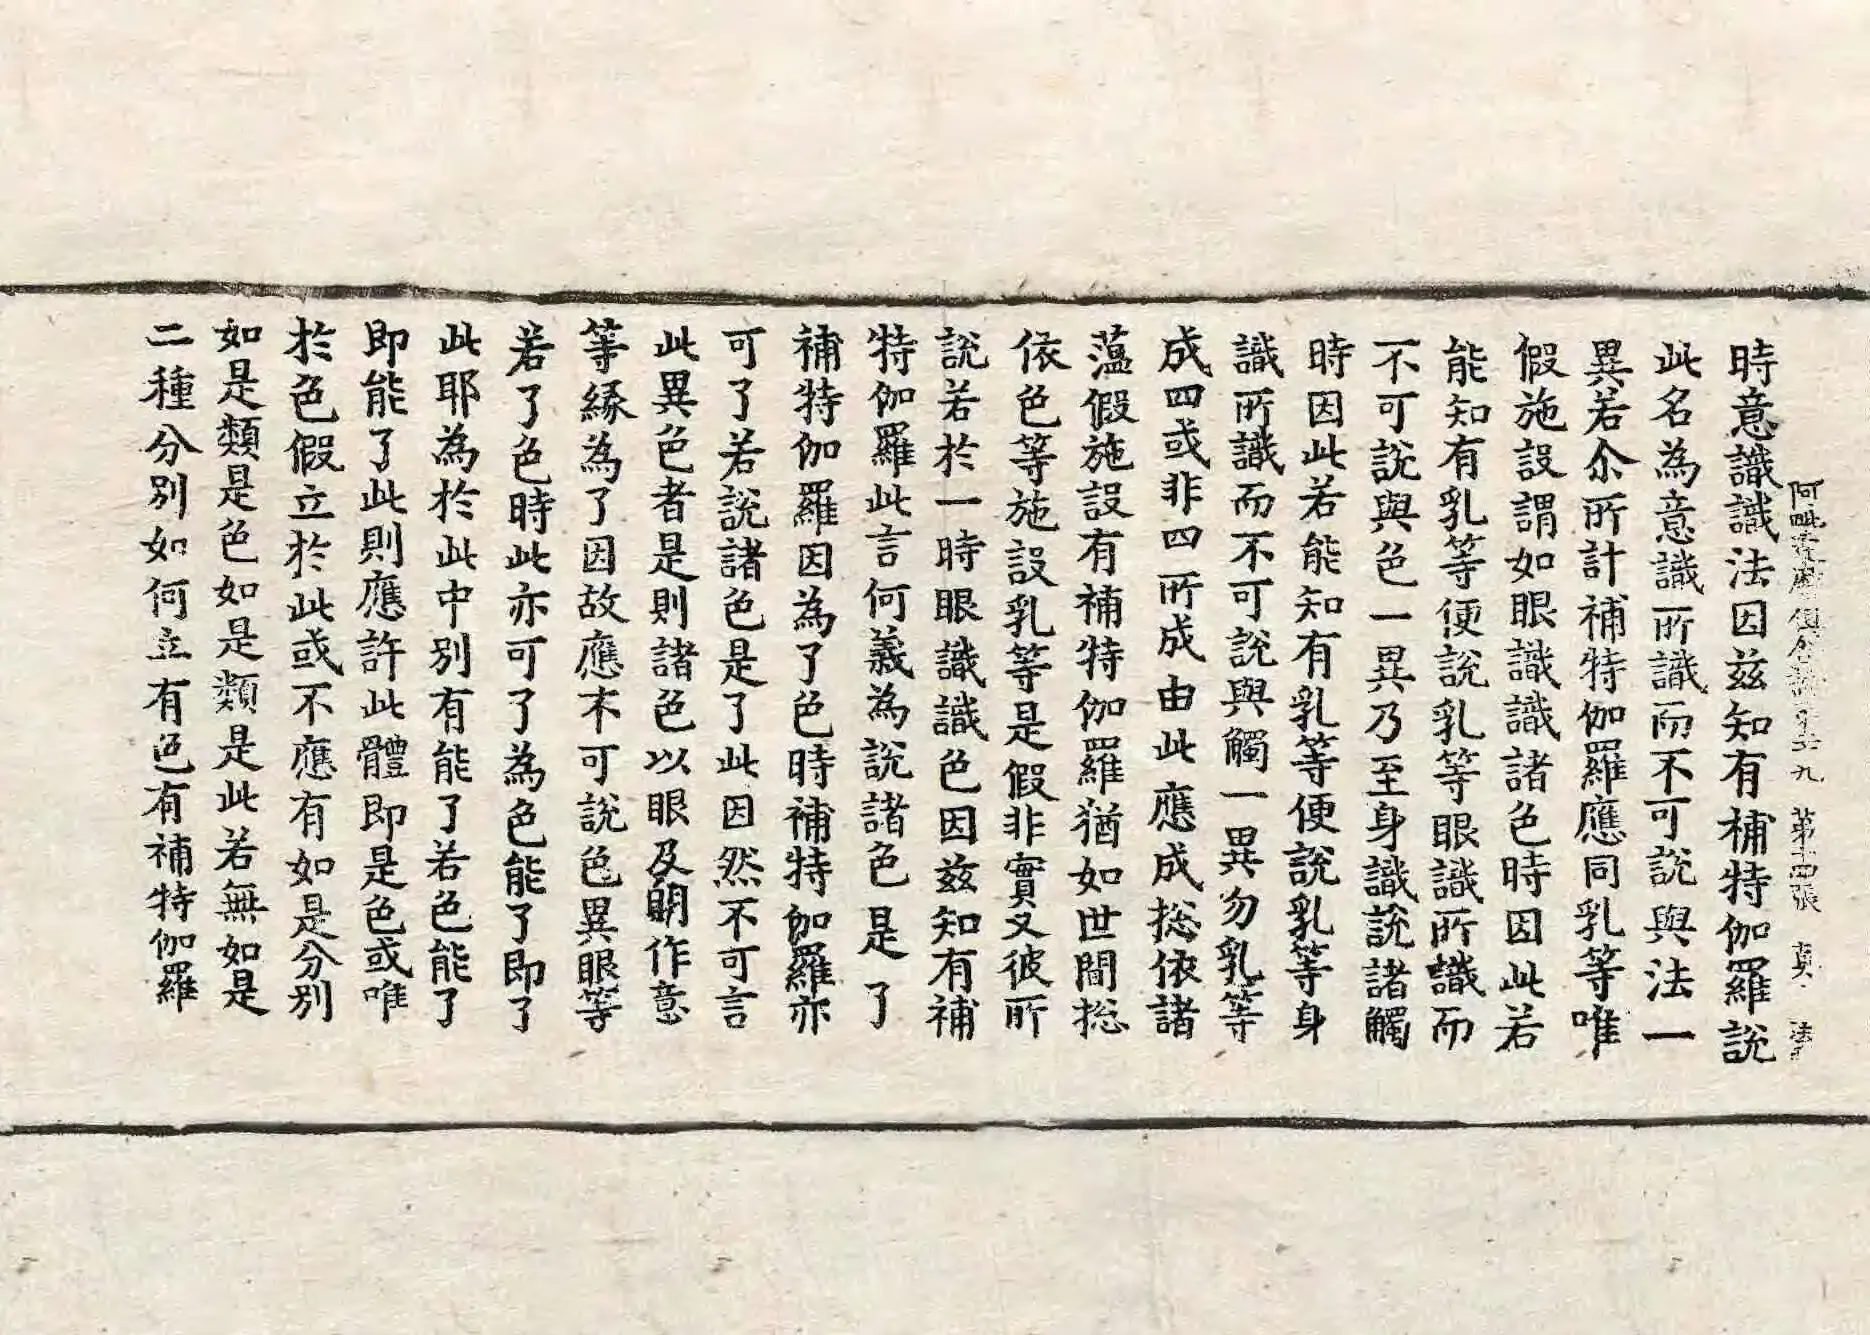 阿毗達磨俱舍論卷二九 第十四張 真 法
時意識識法因茲知有補特伽羅說
此名為意識所識而不可說與法一
異若尒所計補特伽羅應同乳等唯
假施設謂如眼識識諸色時因此若
能知有乳等便說乳等眼識所識而
不可說與色一異乃至身識說諸觸
時因此若能知有乳等便說乳等身
識所識而不可說與觸一異勿乳等
成四或非四所成由此應成捴依諸
薀假施設有補特伽羅猶如世間捴
依色等施設乳等是假非實又彼所
說若於一時眼識識色因茲知有補
特伽羅此言何義為說諸色是了
補特伽羅因為了色時補特伽羅亦
可了若說諸色是了此因然不可言
此異色者是則諸色以眼及明作意
等緣為了因故應不可說色異眼等
若了色時此亦可了為色能了即了
此耶為於此中別有能了若色能了
即能了此則應許此體即是色或唯
於色假立於此或不應有如是分別
如是類是色如是類是此若無如是
二種分別如何立有色有補特伽羅